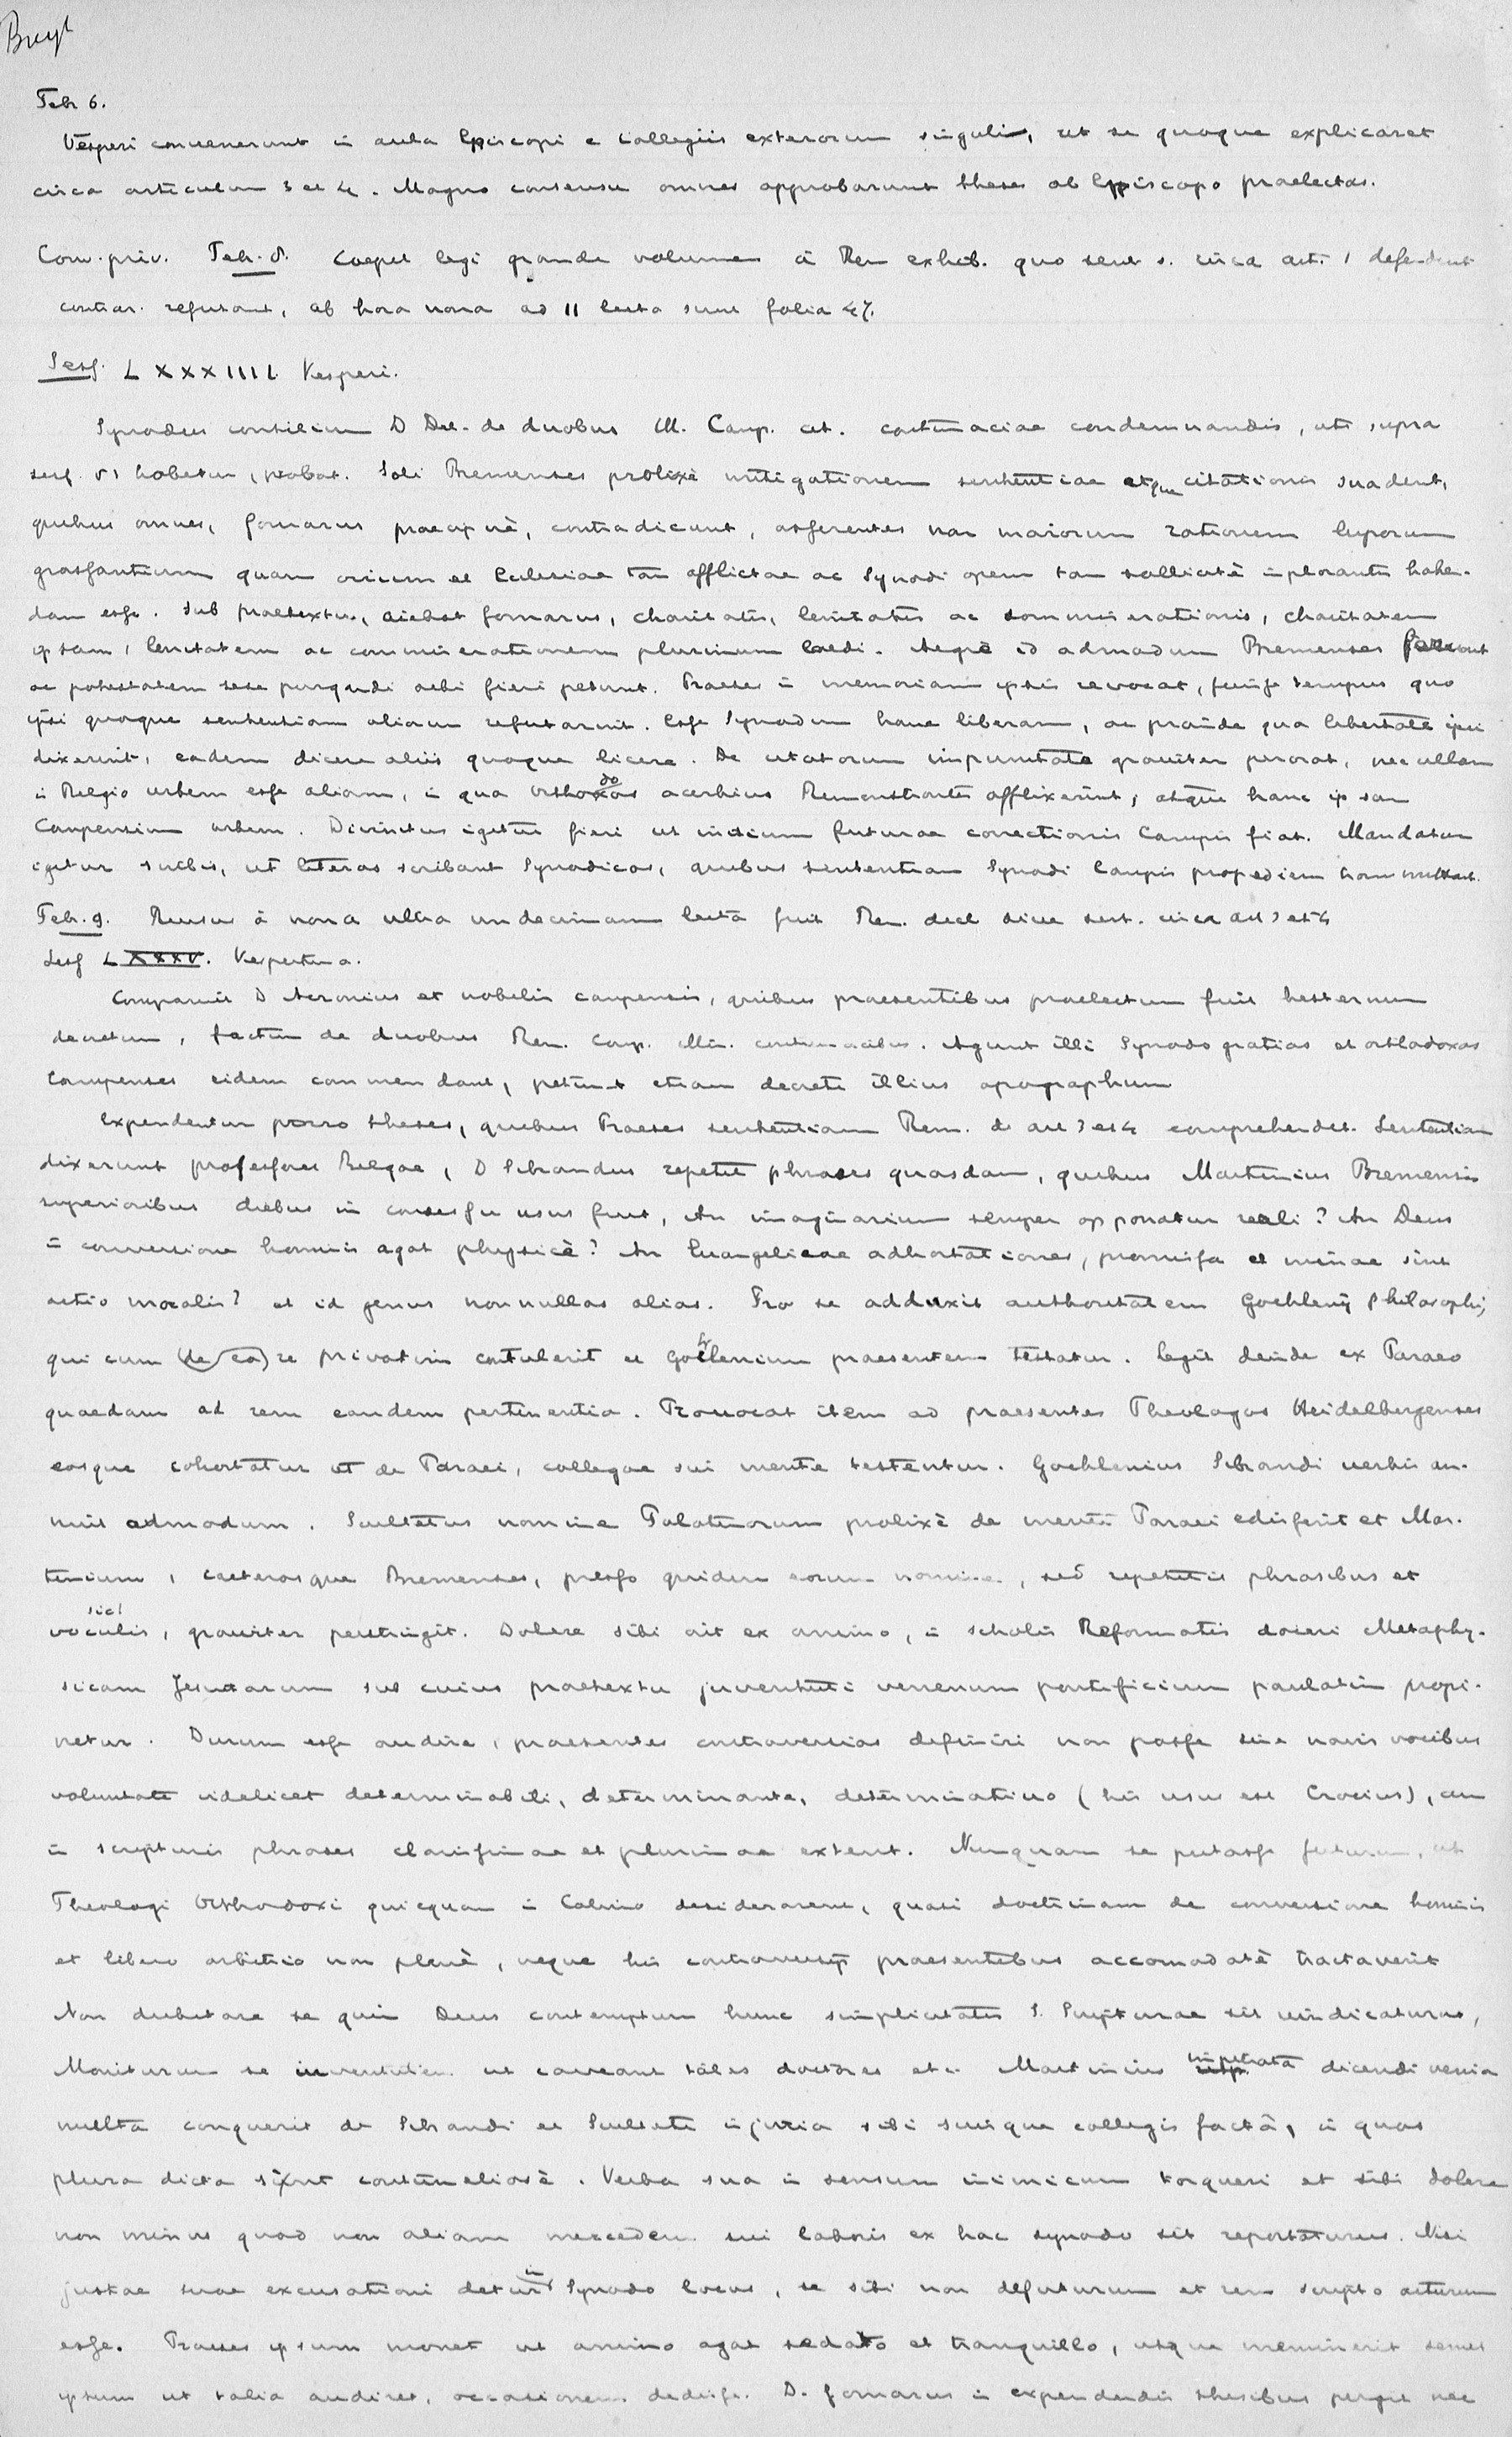 Breyt
Febr 6.
Vesperi convenerunt in aula Episcopi e Collegiis exterorum singuli, ut se quoque explicaret
circa articulum 3 et 4. Magno consensu omnes approbarunt theses ab Episcopo praelectas.
Conv. priv. Feb. 8. Coepit legi grande volumen à Rem exhib. quo sent s. circa art. 1 defendunt
contrar. refutant, ab hora nona ad 11 lecta sunt folia 47.
Sess. LXXXIIII. Vesperi.
Synodus consilium D Del. de duobus M. Camp. cit. contumaciae condemnandis, uti supra
sess. 81 habetur, probat. Soli Bremenses prolixè mitigationem sententiae atque citationis suadent,
quibus omnes, Gomarus praecipuè, contradicunt, asserentes non maiorem rationem luporum
grassantium quam ovium et Ecclesiae tam afflictae ac Synodi opem tam sollicitè implorantis haben-
dam esse. Sub praetextu, aiebat Gomarus, charitatis, lenitatis ac commiserationis, charitatem
ipsam, lenitatem ac commiserationem plurimum laedi. Aegrè id admodum Bremenses ferunt
ac potestatem sese purgandi sibi fieri petunt. Praeses in memoriam ipsis revocat, fuisse tempus quo
ipsi quoque sententiam aliorum refutarunt. Esse Synodum hanc liberam, ac proinde qua libertate ipsi
dixerint, eadem dicere aliis quoque licere. De citatorum impunitate graviter perorat, nec ullam
in Belgio urbem esse aliam, in qua Orthodoxos acerbius Remonstrantes afflixerint, atque hanc ipsam
Campensium urbem. Divinitus igitur fieri ut initium futurae correctionis Campis fiat. Mandatum
igitur scribis, ut literas scribant Synodicas, quibus sententiam Synodi Campis propediem transmittant.
Feb. 9. Rursus à nona ultra undecimam lecta fuit Rem. decl sive sent. circa art 3 et 4
Sess LXXXV. Vespertina.
Comparuit D Acronius et nobilis campensis, quibus praesentibus praelectum fuit hesternum
decretum, factum de duobus Rem. Camp. Min. contumacibus. Agunt illi Synodo gratias et orthodoxos
Campenses eidem commendant, petunt etiam decreti illius apographum
Expenduntur porro theses, quibus Praeses sententiam Rem. de art 3 et 4 comprehendit. Sententiam
dixerunt professores Belgae, D Sibrandus repetit phrases quasdam, quibus Martinius Bremensis
superioribus diebus in consessu usus fuit, An imaginarium semper opponatur reali? An Deus
in conversione hominis agat physicè? An Euangelicae adhortationes, promissa et minae sint
actio moralis? et id genus nonnullas alias. Pro se adduxit authoritatem Goehlenij Philosophi,
qui cum (de ea) re privatim contulerit et Goclenium praesentem testatur. Legit deinde ex Paraeo
quaedam ad rem eandem pertinentia. Provocat item ad praesentes Theologos Heidelbergenses
eosque cohortatur ut de Paraei, collegae sui mente testentur. Goehlenius Sibrandi verbis an-
nuit admodum. Scultetus nomine Palatinorum prolixè de mente Paraei edisserit et Mar-
tinium, caeterosque Bremenses, presso quidem eorum nomine, sed repetitis phrasibus et
sic!
voculis, graviter perstringit. Dolere sibi ait ex animo, in scholis Reformatis doceri Metaphy-
sicam Jesuitarum sub cuius praetextu juventuti venenum pontificium paulatim propi-
netur. Durum esse audire, praesentes controversias definiri non posse sine novis vocibus
voluntate videlicet determinabili, determinante, determinativo (his usus est Crocius), cum
in scripturis phrases clarissimae et plurimae extent. Nunquam se putasse futurum, ut
Theologi Orthodoxi quicquam in Calvino desiderarent, quasi doctrinam de conversione hominis
et libero arbitrio non plenè, neque his controversijs praesentibus accomodatè tractaverit
Non dubitare se quin Deus contemptum hunc simplicitatis S. Scripturae sit vindicaturus,
Moniturum se iuventutem ut caveant tales doctores etc. Martinius impetrata dicendi venia
multa conquerit de Sibrandi et Sculteti injuria sibi suisque collegis factâ, in quos
plura dicta sint contumeliosè. Verba sua in sensum inimicum torqueri et sibi dolere
non minus quod non aliam mercedem sui laboris ex hac synodo sit reportaturus. Nisi
justae suae excusationi detur in Synodo locus, se sibi non defuturum et rem scripto acturum
esse. Praeses ipsum monet ut animo agat sedato et tranquillo, utque meminerit semet
ipsum ut talia audiret, occasionem dedisse. D. Gomarus in expendendis thesibus pergit nec